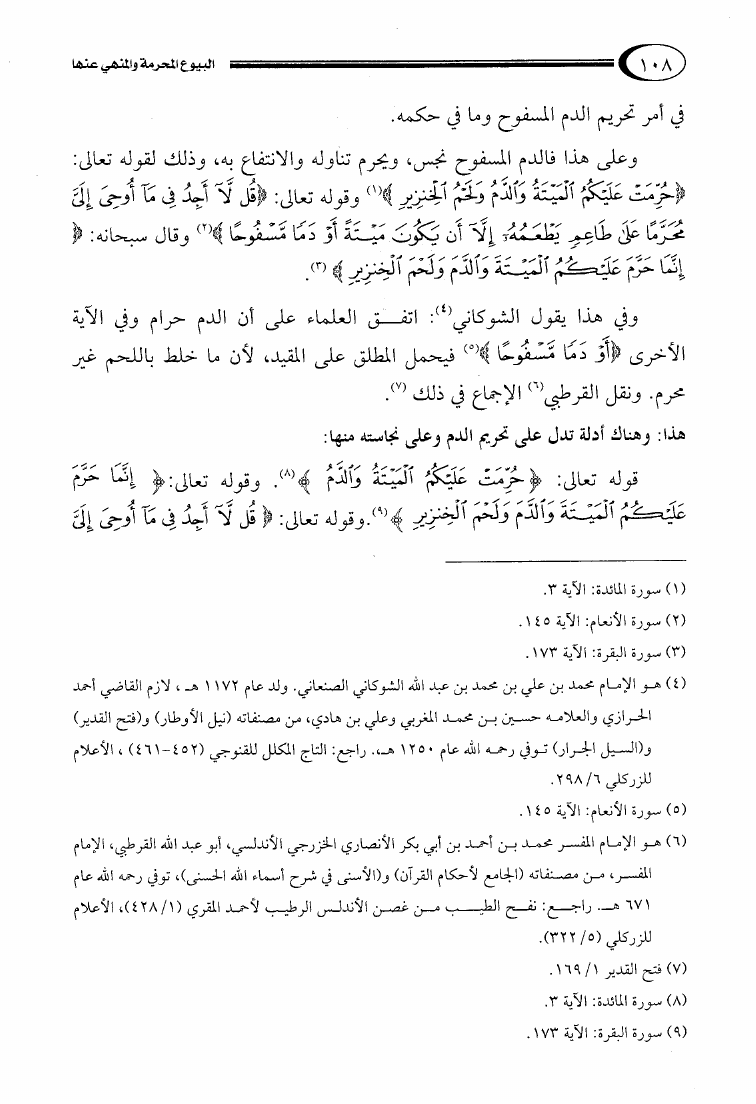 ١٠٨ البيوع المحرمة والمنهي عنها
في أمر تحريم الدم المسفوح وما في حكمه.
وعلى هذا فالدم المسفوح نجس، ويحرم تناوله والانتفاع به، وذلك لقوله تعالى:
﴿حُرِّمَتْ عَلَيْكُمُ الْمَيْتَةُ وَالدَّمُ وَلَحْمُ الْخِنزِيرِ﴾(١) وقوله تعالى: ﴿قُل لَّا أَجِدُ فِي مَا أُوحِيَ إِلَيَّ
مُحَرَّمًا عَلَىٰ طَاعِمٍ يَطْعَمُهُ إِلَّا أَن يَكُونَ مَيْتَةً أَوْ دَمًا مَّسْفُوحًا﴾(٢) وقال سبحانه: ﴿
إِنَّمَا حَرَّمَ عَلَيْكُمُ الْمَيْتَةَ وَالدَّمَ وَلَحْمَ الْخِنزِيرِ﴾(٣).
وفي هذا يقول الشوكاني(٤): اتفق العلماء على أن الدم حرام وفي الآية
الأخرى ﴿أَوْ دَمًا مَّسْفُوحًا﴾(٥) فيحمل المطلق على المقيد، لأن ما خلط باللحم غير
محرم. ونقل القرطبي(٦) الإجماع في ذلك(٧).
هذا: وهناك أدلة تدل على تحريم الدم وعلى نجاسته منها:
قوله تعالى: ﴿حُرِّمَتْ عَلَيْكُمُ الْمَيْتَةُ وَالدَّمُ﴾(٨). وقوله تعالى: ﴿إِنَّمَا حَرَّمَ
عَلَيْكُمُ الْمَيْتَةَ وَالدَّمَ وَلَحْمَ الْخِنزِيرِ﴾(٩). وقوله تعالى: ﴿قُل لَّا أَجِدُ فِي مَا أُوحِيَ إِلَيَّ
(١) سورة المائدة: الآية ٣.
(٢) سورة الأنعام: الآية ١٤٥.
(٣) سورة البقرة: الآية ١٧٣.
(٤) هو الإمام محمد بن علي بن محمد بن عبد الله الشوكاني الصنعاني. ولد عام ١١٧٢ هـ، لازم القاضي أحمد
الحرازي والعلامه حسين بن محمد المغربي وعلي بن هادي، من مصنفاته (نيل الأوطار) و(فتح القدير)
و(السيل الجرار) توفي رحمه الله عام ١٢٥٠ هـ.. راجع: التاج المكلل للقنوجي (٤٥٢-٤٦١) ، الأعلام
للزركلي ٦/ ٢٩٨.
(٥) سورة الأنعام: الآية ١٤٥.
(٦) هو الإمام المفسر محمد بن أحمد بن أبي بكر الأنصاري الخزرجي الأندلسي، أبو عبد الله القرطبي، الإمام
المفسر، من مصنفاته (الجامع لأحكام القرآن) و(الأسنى في شرح أسماء الله الحسنى)، توفي رحمه الله عام
٦٧١ هـ. راجع: نفح الطيب من غصن الأندلس الرطيب لأحمد المقري (١/ ٤٢٨)، الأعلام
للزركلي (٥/ ٣٢٢).
(٧) فتح القدير ١/ ١٦٩.
(٨) سورة المائدة: الآية ٣.
(٩) سورة البقرة: الآية ١٧٣.